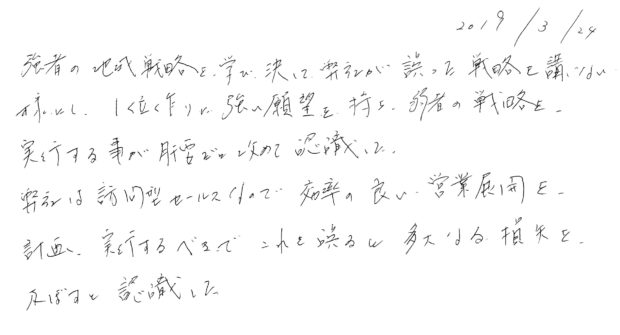 2019/3/24
強者の地域戦略を学び決して弊社が誤った戦略を講じない
様にし、1位作りに強い願望を持ち、弱者の戦略を、
実行する事が肝要だと改めて認識した。
弊社は訪問型セールスなので効率の良い営業展開を、
計画、実行するべきで これを誤ると多大なる損失を、
及ぼすと認識した